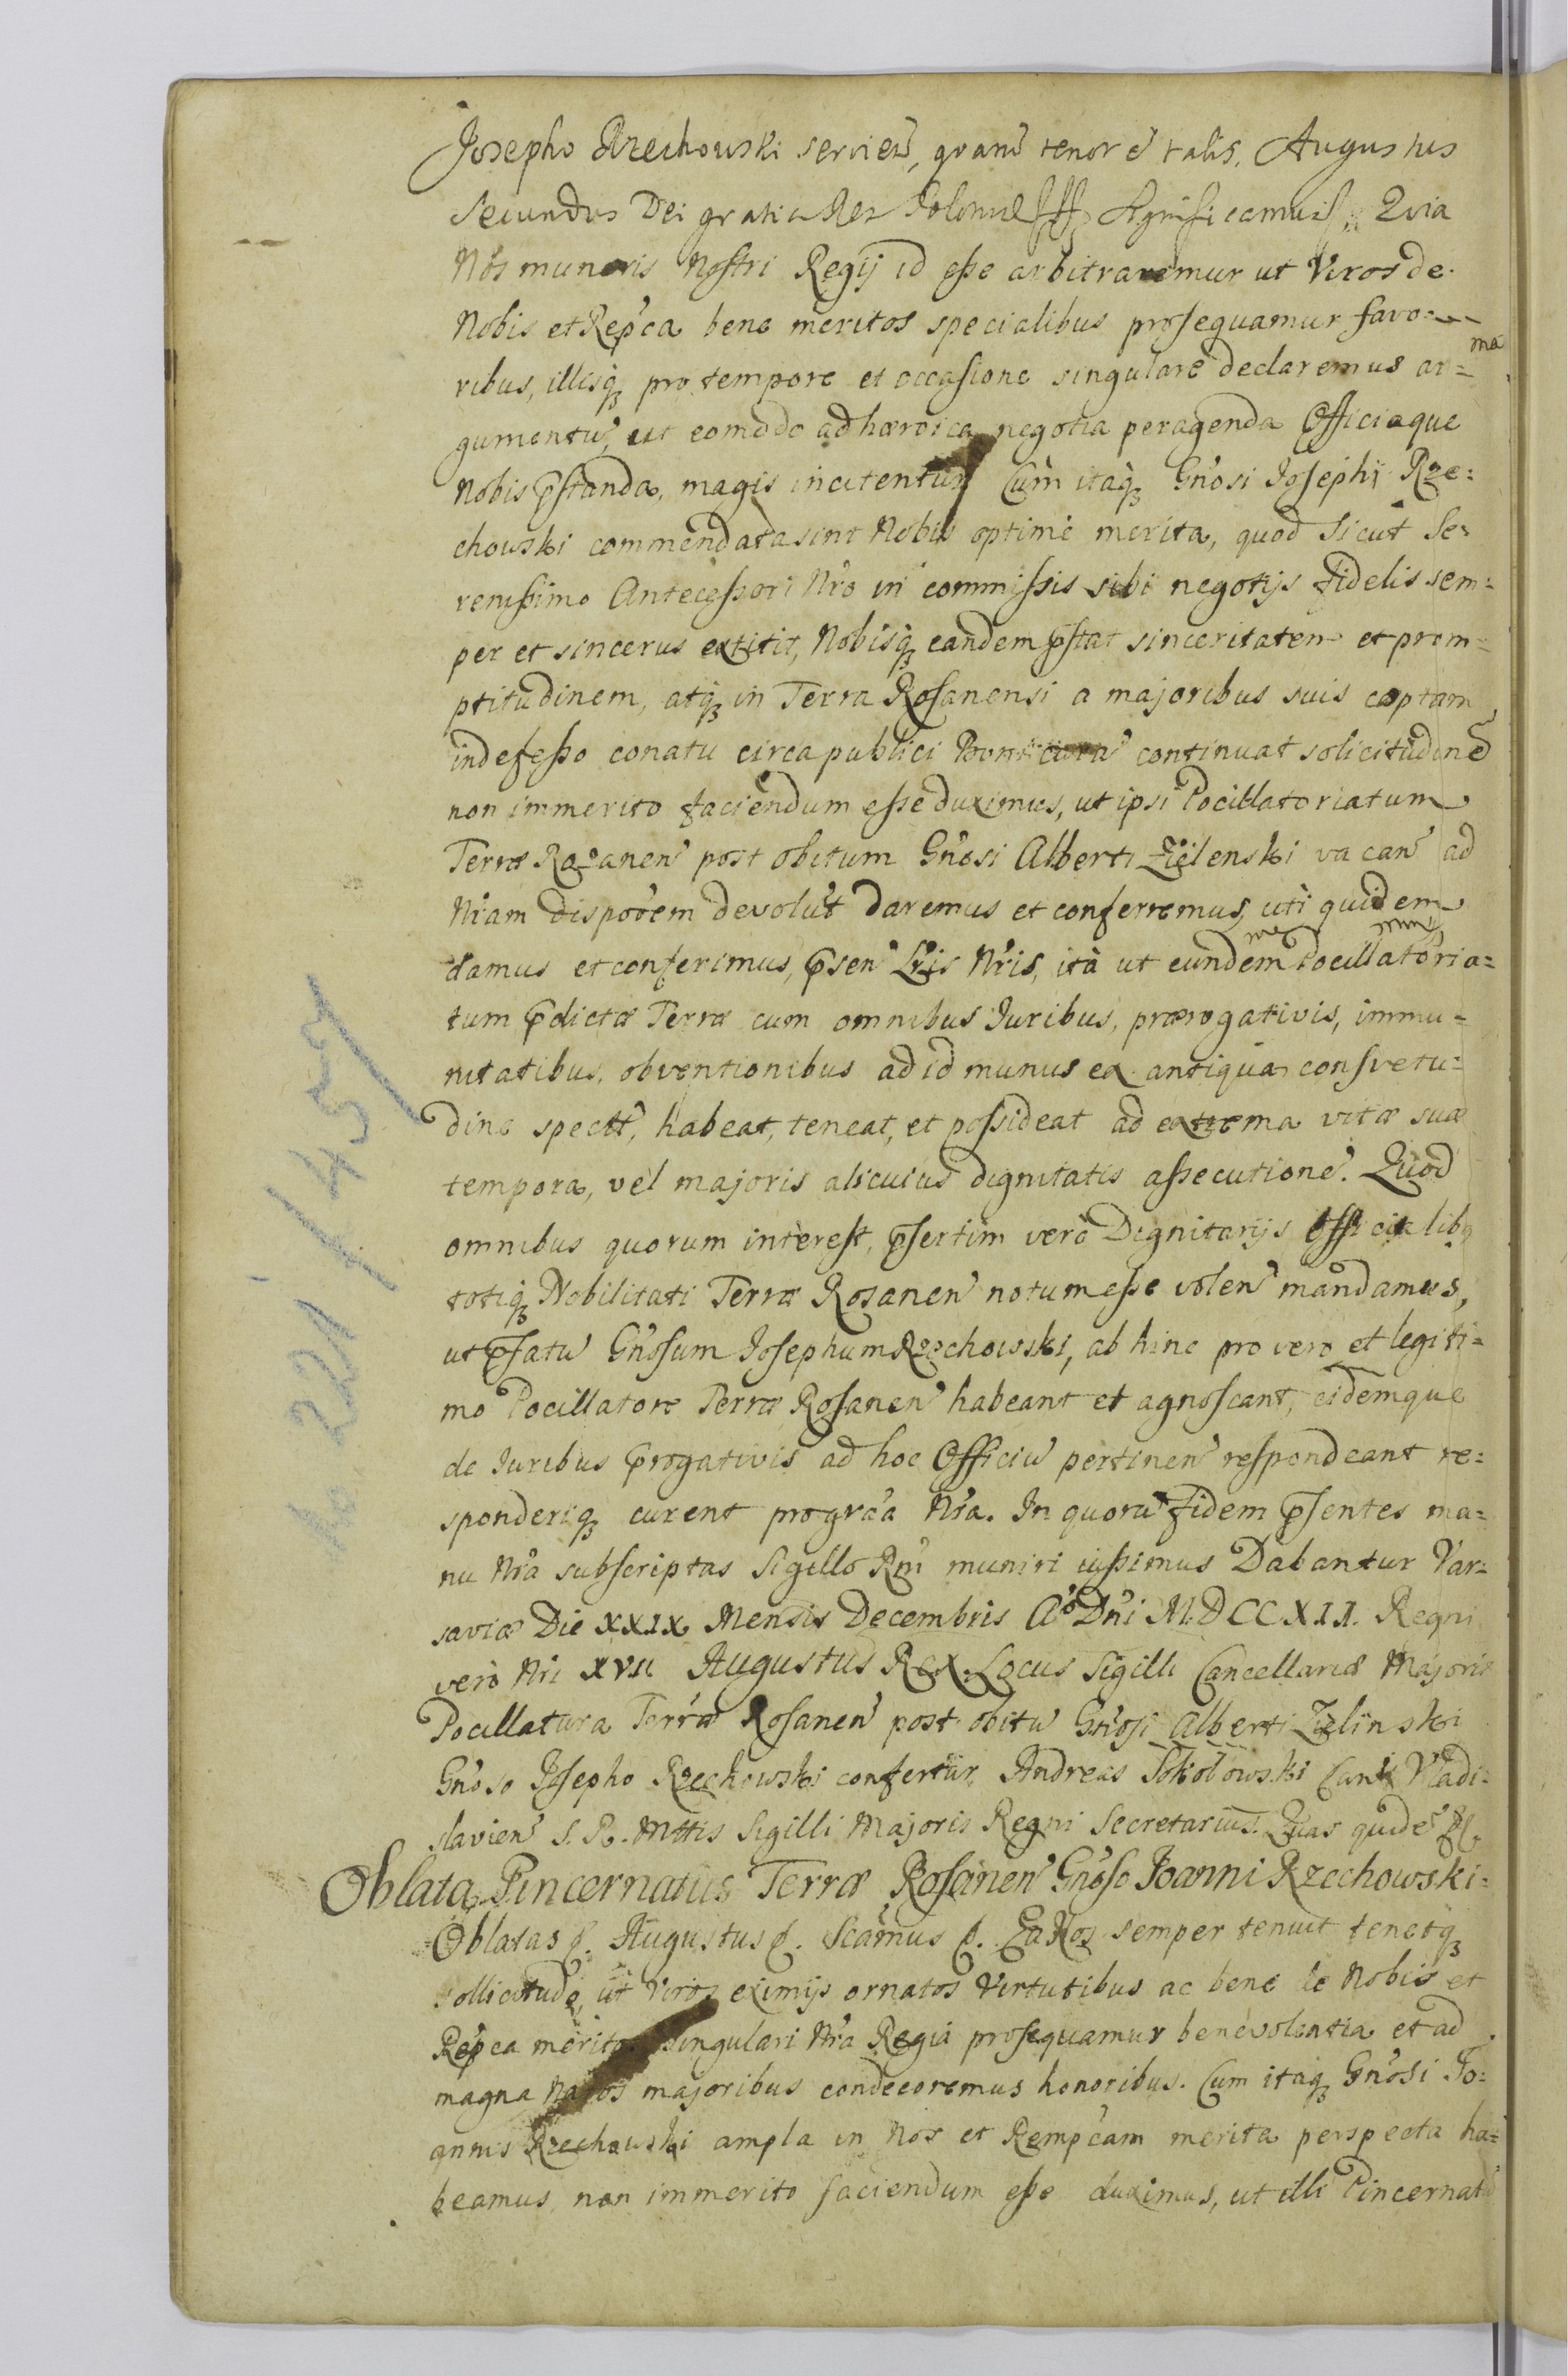 Josepho Rzechowski servien̄, quarū tenor ē talis. Augustus
Secundus Dei gratia Rex Poloniæ Significamus, Quia
Nos muneris Nostri Regij id esse arbitraremur ut Viros de
Nobis et Rep̃ca bene meritos specialibus prosequamur favo=
ribus, illisq₃ pro tempore et occasione singulare declaremus ar=
ma
gumentū, ut eomodo ad hæroica negotia peragenda Officiaque
Nobis p̄standa, magis incitentur Cùm itaq₃ Gn̄osi Josephi Rze=
chowski commendata sint Nobis optimè merita, quod sicut Se=
renissimo Antecessori Nr̄o in commissis sibi negotijs fidelis sem=
per et sincerus extitit, Nobisq₃ eandem p̄stat sinceritatem et prom=
ptitudinem, atq₃ in Terra Rosanensi a majoribus suis cæptam
indefesso conatu circa publici Boni curā continuat solicitudinē
non immerito faciendum esse duximus, ut ipsi Pocillatoriatum
Terræ Rozanen̄ post obitum Gn̄osi Alberti Zielenski vacan̄ ad
Nr̄am dispoōem devolut̄ daremus et conferremus, uti quidem
damus et conferimus, p̄sen̄ Lr̄is Nr̄is, ità ut eundem Pocillatoria=
tum p̄dictæ Terræ cum omnibus Juribus, prærogativis, immu=
nitatibus, obventionibus ad id munus ex antiqua consvetu=
dine spectt̄, habeat, teneat, et possideat ad extrema vitæ suæ
tempora, vel majoris alicuius dignitatis assecutionē. Quod
omnibus quorum interest, p̄sertim verò Dignitarijs Officialib₉
totiq₃ Nobilitati Terræ Rozanen̄ notum esse volen̄ mandamus,
ut p̄fatū Gn̄osum Josephum Rzechowski, ab hinc pro vero et legiti=
mo Pocillatore Terræ Rosanen̄ habeant et agnoscant, eidemque
de Juribus p̄rogativis ad hoc Officiū pertinen̄ respondeant re=
sponderiq₃ curent pro gr̄ā Nr̄a. In quorū fidem p̄sentes ma=
nu Nr̄a subscriptas Sigillo Rn̄i muniri iussimus Dabantur Var=
saviæ Die XXIX Mensis Decembris Aō Dn̄i M.DCCXII. Regni
vero Nr̄i XVII Augustus Rex. Locus Sigilli Cancellariæ Majoris
Pocillatura Terræ Rosanen̄ post obitū Gn̄osi Alberti Zielinski
Gn̄oso Josepho Rzechowski confertur, Andreas Sokołowski Can Vladi=
slavien̄ S. R. Mttis Sigilli Majoris Regni Secretarius. Quas quidē
Oblata Pincernatus Terræ Rosanen̄ Gn̄oso Joanni Rzechowski
Oblatas Augustus Scamus Ea Nos semper tenuit tenetq₃
sollicitudo, ut Viros eximijs ornatos Virtutibus ac bene de Nobis et
Rep̃ca meritos singulari Nr̄a Regia prosequamur benevolentia et ad
magna Natos majoribus condecoremus honoribus. Cum itaq₃ Gn̄osi Jo=
annis Rzechowski ampla in Nos et Remp̃cam merita perspecta ha=
beamus, non immerito faciendum esse duximus, ut illi Pincernatū